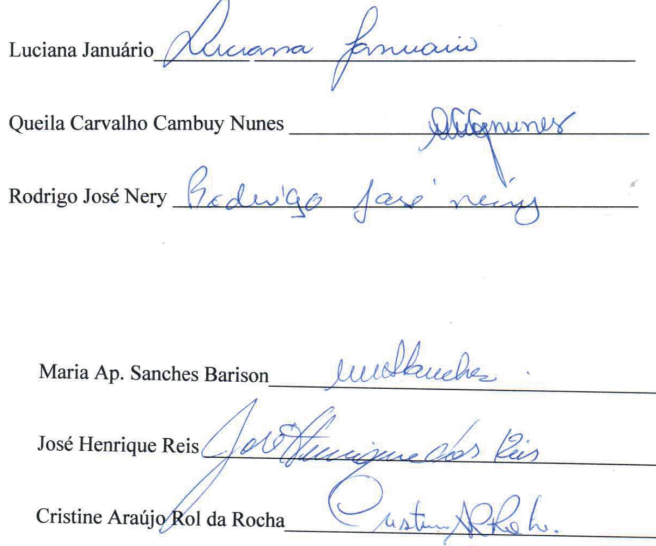 Luciana Januário Luciana Januario
Queila Carvalho Cambuy Nunes
Rodrigo José Nery Rodrigo José Nery
Maria Ap. Sanches Barison
José Henrique Reis José Henrique dos Reis
Cristine Araújo Rol da Rocha